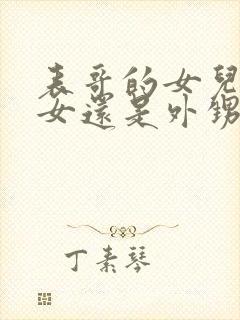 表哥的女兒
女還是外甥
丁素琴